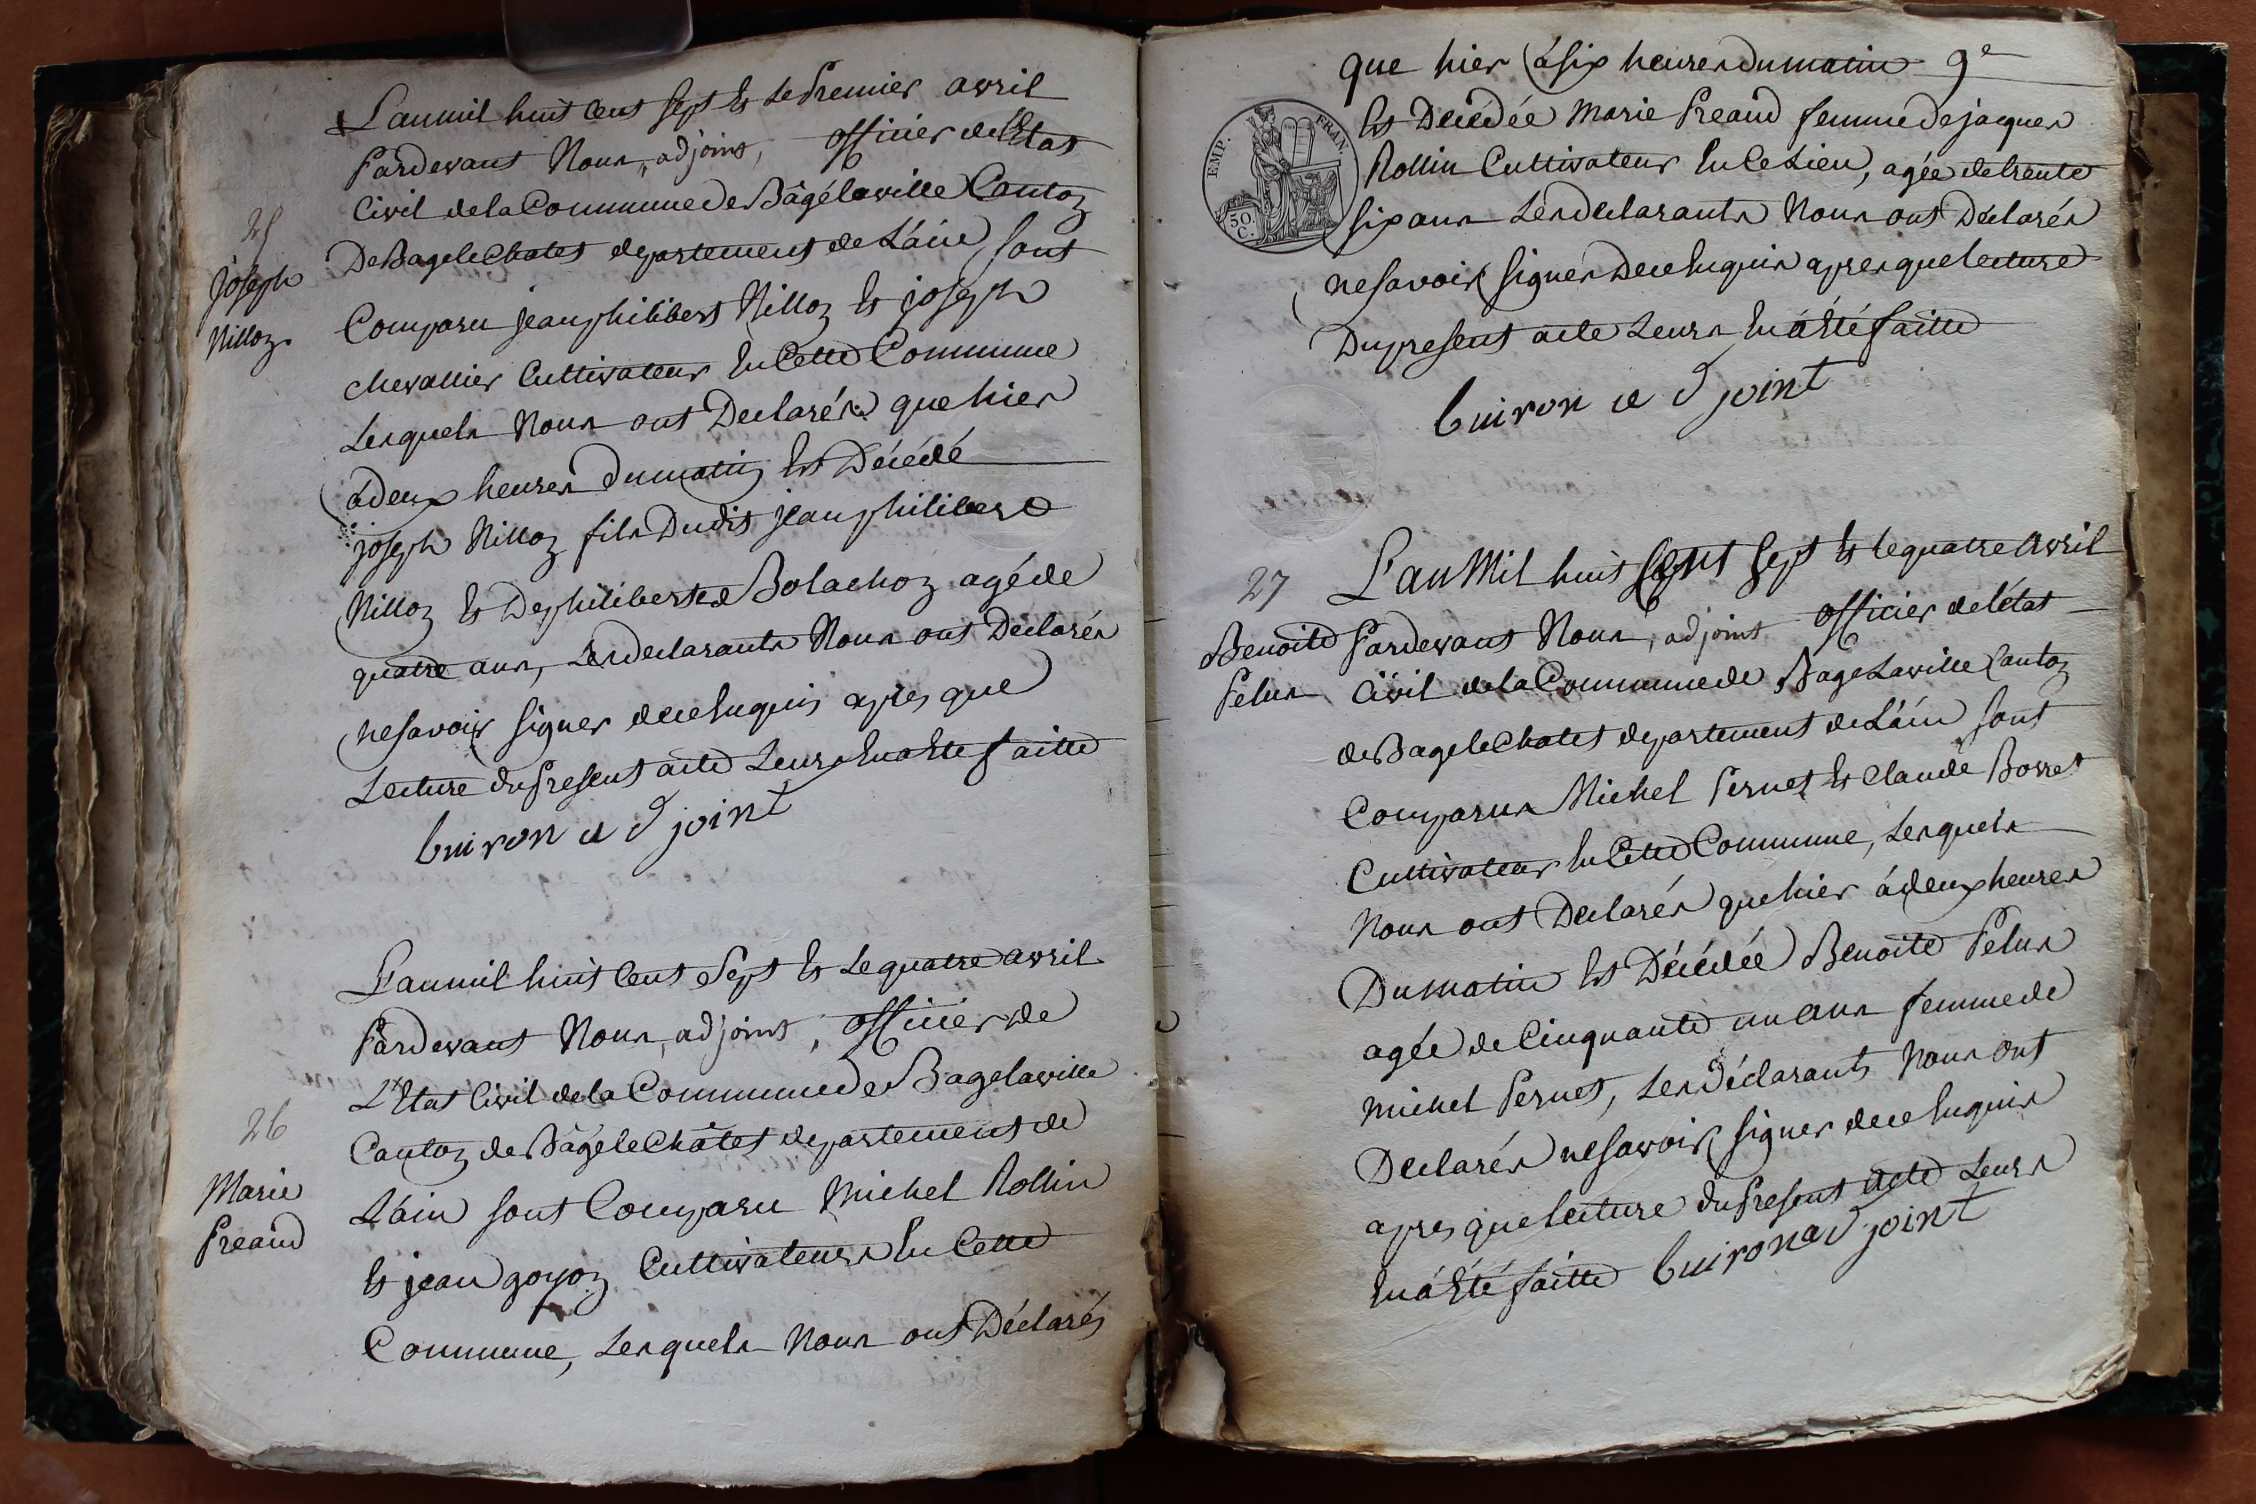 25
Joseph
Nilloz
L'an mil huit Cent Sept Et Le Premier avril
Pardevant Nous, adjoint, officier de l'Etat
Civil de la Commune de Bâgé laville Canton
De Bagé le Chatel departement de L'ain, sont
Comparu jean philibert Nilloz Et joseph
chevallier Cultivateur En Cette Commune
Lesquels Nous ont Declarés que hier
à deux heures du matin Est Décédé
joseph Nilloz fils Dudit jean philibert
Nilloz Et De philiberte Bolachoz agé de
quatre ans, Les declarants Nous ont Déclarés
ne savoir signer de ce Enquis apres que
Lecture du Present acte Leurs En a Eté faitte
buiron adjoint
26
Marie
Preaud
L'an mil huit Cent Sept Et Le quatre avril
Pardevant Nous, adjoint, officier de
L'Etat Civil de la Commune de Bagé laville
Canton de Bâgé le Châtel departement de
L'ain sont Comparu Michel Rollin
Et jean goyon Cultivateurs En Cette
Commune, Lesquels Nous ont Déclarés
que hier à six heures du matin 9e
EMP. FRAN.
50 C.
Est Decédée Marie Preaud femme de jaques
Rollin Cultivateur En Ce Lieu, agée de trente
six ans Les declarants Nous ont Déclarés
ne savoir signer De ce Enquis apres que lecture
Du present acte Leurs En á Eté faitte
buiron adjoint
27
Benoite
Pelus
L'an Mil huit Cent Sept Et le quatre avril
Pardevant Nous, adjoint officier de l'état
Civil de la Commune de Bagé Laville Canton
de Bagé le Chatel departement de L'ain sont
Comparus Michel Pernet Et Claude Borret
Cultivateur En Cette Commune, Lesquels
Nous ont Declarés que hier á deux heures
Du matin Est Décédée Benoite Pelus
agée de Cinquante un ans femme de
Michel Pernet, Les déclarants Nous ont
Declarés ne savoir signer de ce Enquis
apres que lecture du Present acte Leurs
En á Eté faitte buiron adjoint